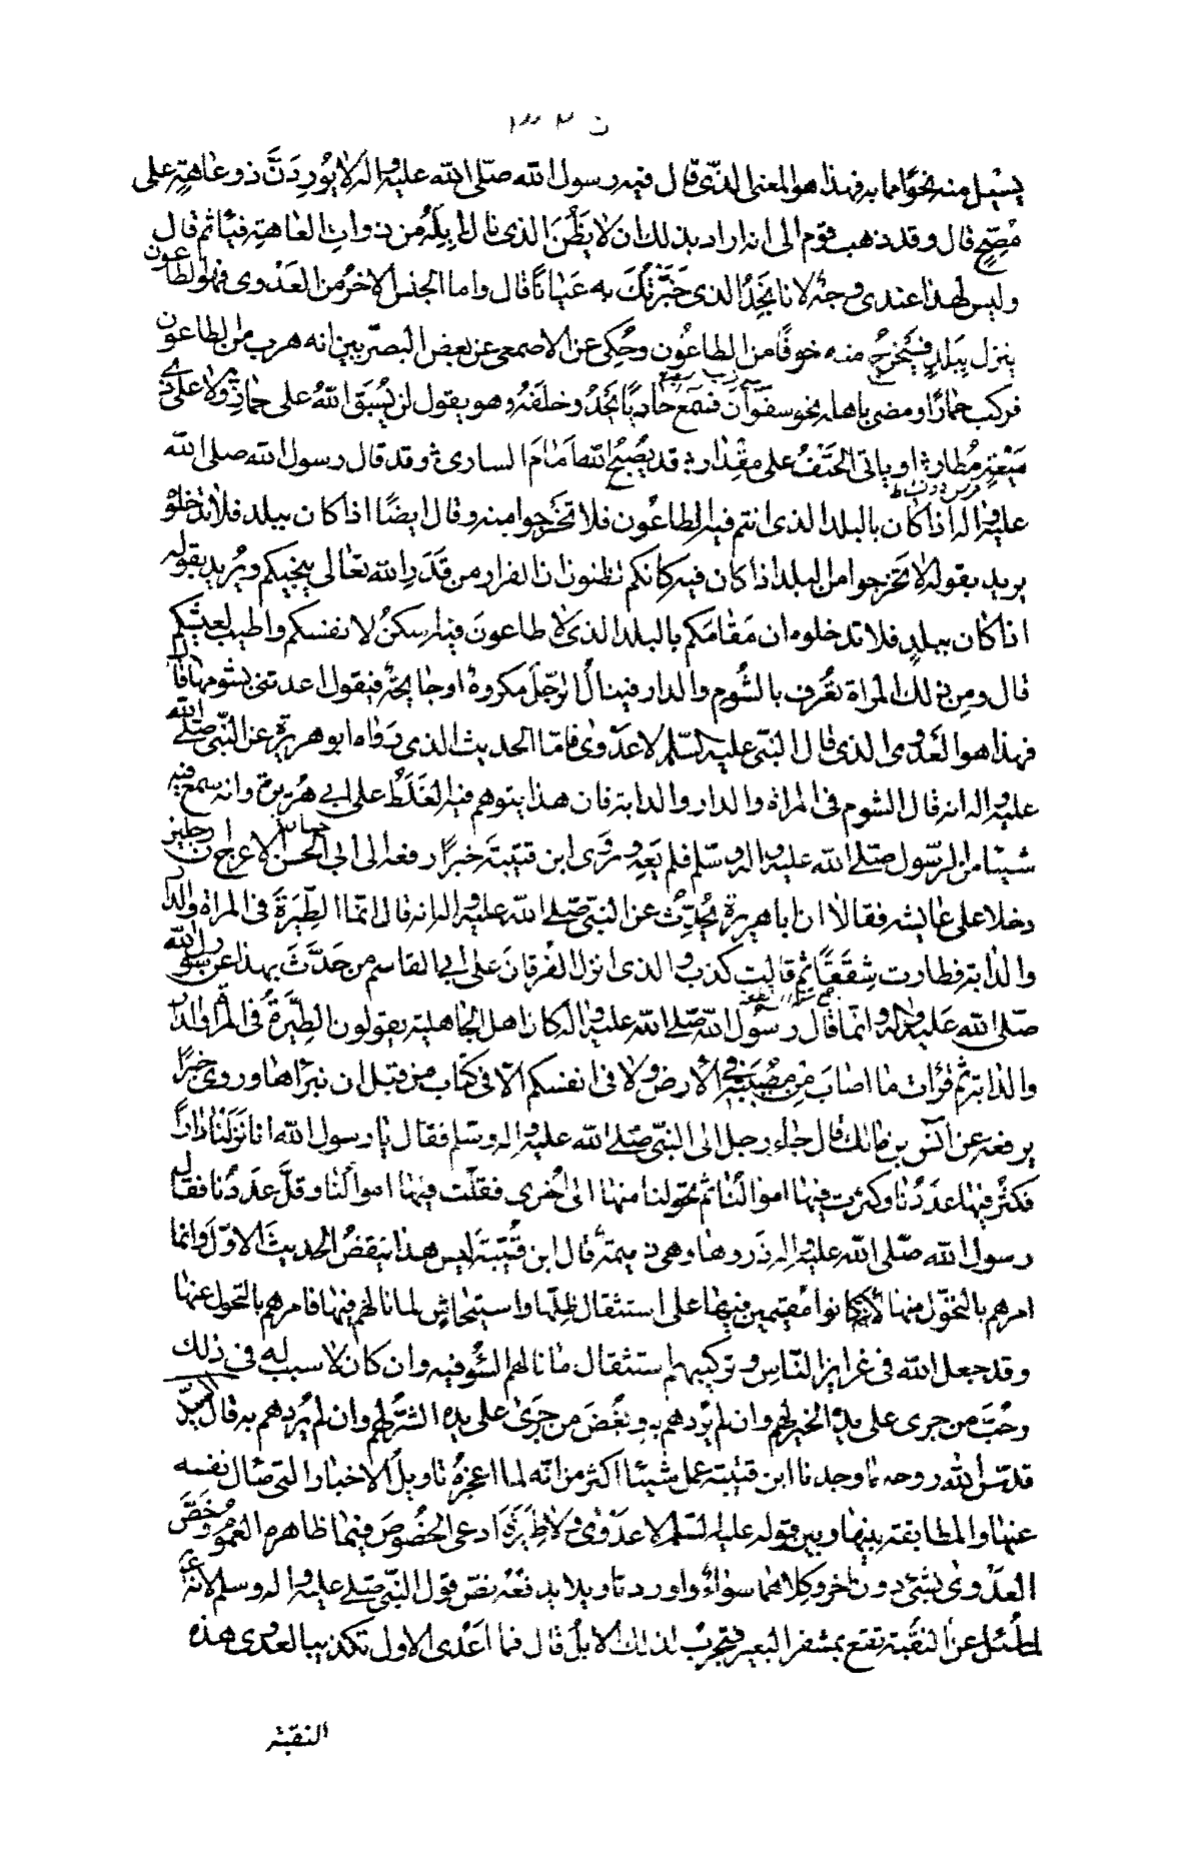 يسيل منه نحوًا مما به فهذا هو المعنى الذى قال فيه رسول الله صلّى الله عليه واله لا يُورِدَنَّ ذو عاهةٍ على
مُصِحٍّ قال وقد ذهب قوم الى انه اراد بذلك ان لا يظن الذى نال ابله من ذوات العاهة فيأثم قال
وليس لهذا عندى وجهٌ لانا نجد الذى خبّرتك به عيانًا قال واما الجنس الاخر من العدوى فهو الطاعون
ينزل ببلدٍ فيخرج منه خوفًا من الطاعون وحُكى عن الاصمعى عن بعض البصريين انه هرب من الطاعون
فركب حمارًا ومضى باهله نحو سفوان فسمع حاديًا يحدو خلفه وهو يقول لن يُسبَق اللهُ على حمار ولا على ذى
مَيْعَةٍ مُطار او ياتى الحتف على مقدار قد يُصبح الله اَمامَ السارى وقد قال رسول الله صلى الله
عليه واله اذا كان بالبلد الذى انتم فيه الطاعون فلا تخرجوا منه وقال ايضًا اذا كان ببلد فلا تدخلوه
يريد بقوله لا تخرجوا من البلد اذا كان فيه كانكم تظنون ان الفرار من قَدَرِ الله تعالى ينجيكم ويريد بقوله
اذا كان ببلدٍ فلا تدخلوه ان مَقامَكم بالبلد الذى لا طاعونَ فيه اسكنُ لانفسكم واطيب لعيشكم
قال ومن ذلك المراة تعرف بالشُوم والدار فينال الرجل مكروهٌ او جايحةٌ فيقول اعدتنى بشومها قال
فهذا هو العدوى الذى قال النبى عليه السّلم لا عدوى فامّا الحديث الذى رواه ابو هريرة عن النّبى صلّى الله
عليه واله انه قال الشوم فى المراة والدار والدابة فان هذا يتوهم فيه الغَلَطُ على ابى هُريرة وانه سمع فيه
شيئا من الرسول صلّى الله عليه واله وسلّم فلم يَعِهِ ورَوى ابن قتيبة خبرًا رفعه الى ابى حسان الاعرج ان رجلين
دخلا على عايشه فقالا ان ابا هريرة يُحدِّث عن النبىّ صلّى الله عليه واله انه قال انّما الطِّيَرَة فى المراة والدار
والدابة فطارت شِقَقًا ثم قالت كذب والذى انزل الفُرقانَ على ابى القاسم من حَدَّثَ بهذا عن رسول الله
صلّى الله عليه واله وانّما قال رسول الله صلّى الله عليه واله كان اهل الجاهلية يقولون الطِّيَرَةُ فى المراة والدار
والدابة ثم قرأت ما اصابَ من مُصيبة فى الارض ولا فى انفسكم الّا فى كتاب من قبل ان نبراها وروى خبرًا
يرفعه عن انس بن مالك قال جاء رجل الى النبىّ صلّى الله عليه واله وسلّم فقال يا رسول الله انا نزلنا دارًا
فكثُر فيها عدَدُنا وكثرت فيها اموالُنا ثم تحولنا منها الى اُخرى فقلّت فيها اموالنا وقلَّ عدَدُنا فقال
رسول الله صلّى الله عليه واله ذروها وهى ذميمة قال ابن قُتيبة ليس هذا ينقضُ الحديثَ الاوّل وانما
امرهم بالتحوّل منها لانهم كانوا مقيمين فيها على استثقال ظلّها واستيحاش لما نالهم فيها فامرهم بالتحول عنها
وقد جعل الله فى غرايز النّاس وتركيبهم استثقال ما نالهم السُّوء فيه وان كان لا سبب له فى ذلك
وحُبَّ من جرى على يده الخير لهم وان لم يُردهم به وبُغضَ من جَرى على يده الشرّ لهم وان لم يُردهم به قال السيّد
قدّس الله روحه ما وجدنا ابن قتيبة عمل شيئا اكثر من انّه لما اعجزه تاويلُ الاخبار التى سال نفسه
عنها والمطابقة بينها وبين قوله عليه السّلم لا عدوى ولا طِيَرَة ادعى الخصُوصَ فيما ظاهره العموم وخَصَّ
العدوى بشىء دون اخر وكلاهما سواء واورد تاويلا يدفعه نصّ قول النّبىّ صلّى عليه واله وسلم لانه ع
لما سُئل عن النقبة تقع بمشفر البعير فتجرب لذلك الابلُ قال فما اَعْدى الاول تكذيبا لعدوى هذه
النقبة